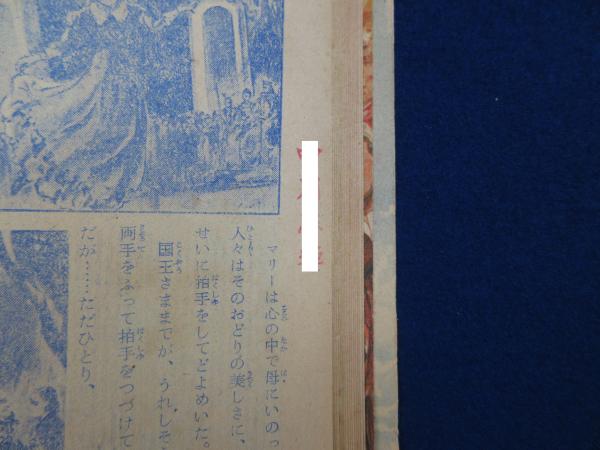 マリーは心の中で母にいのっ
人々はそのおどりの美しさに、
せいに拍手をしてどよめいた。
国王さままでが、うれしそ
両手をふって拍手をつづけて
だが……ただひとり、